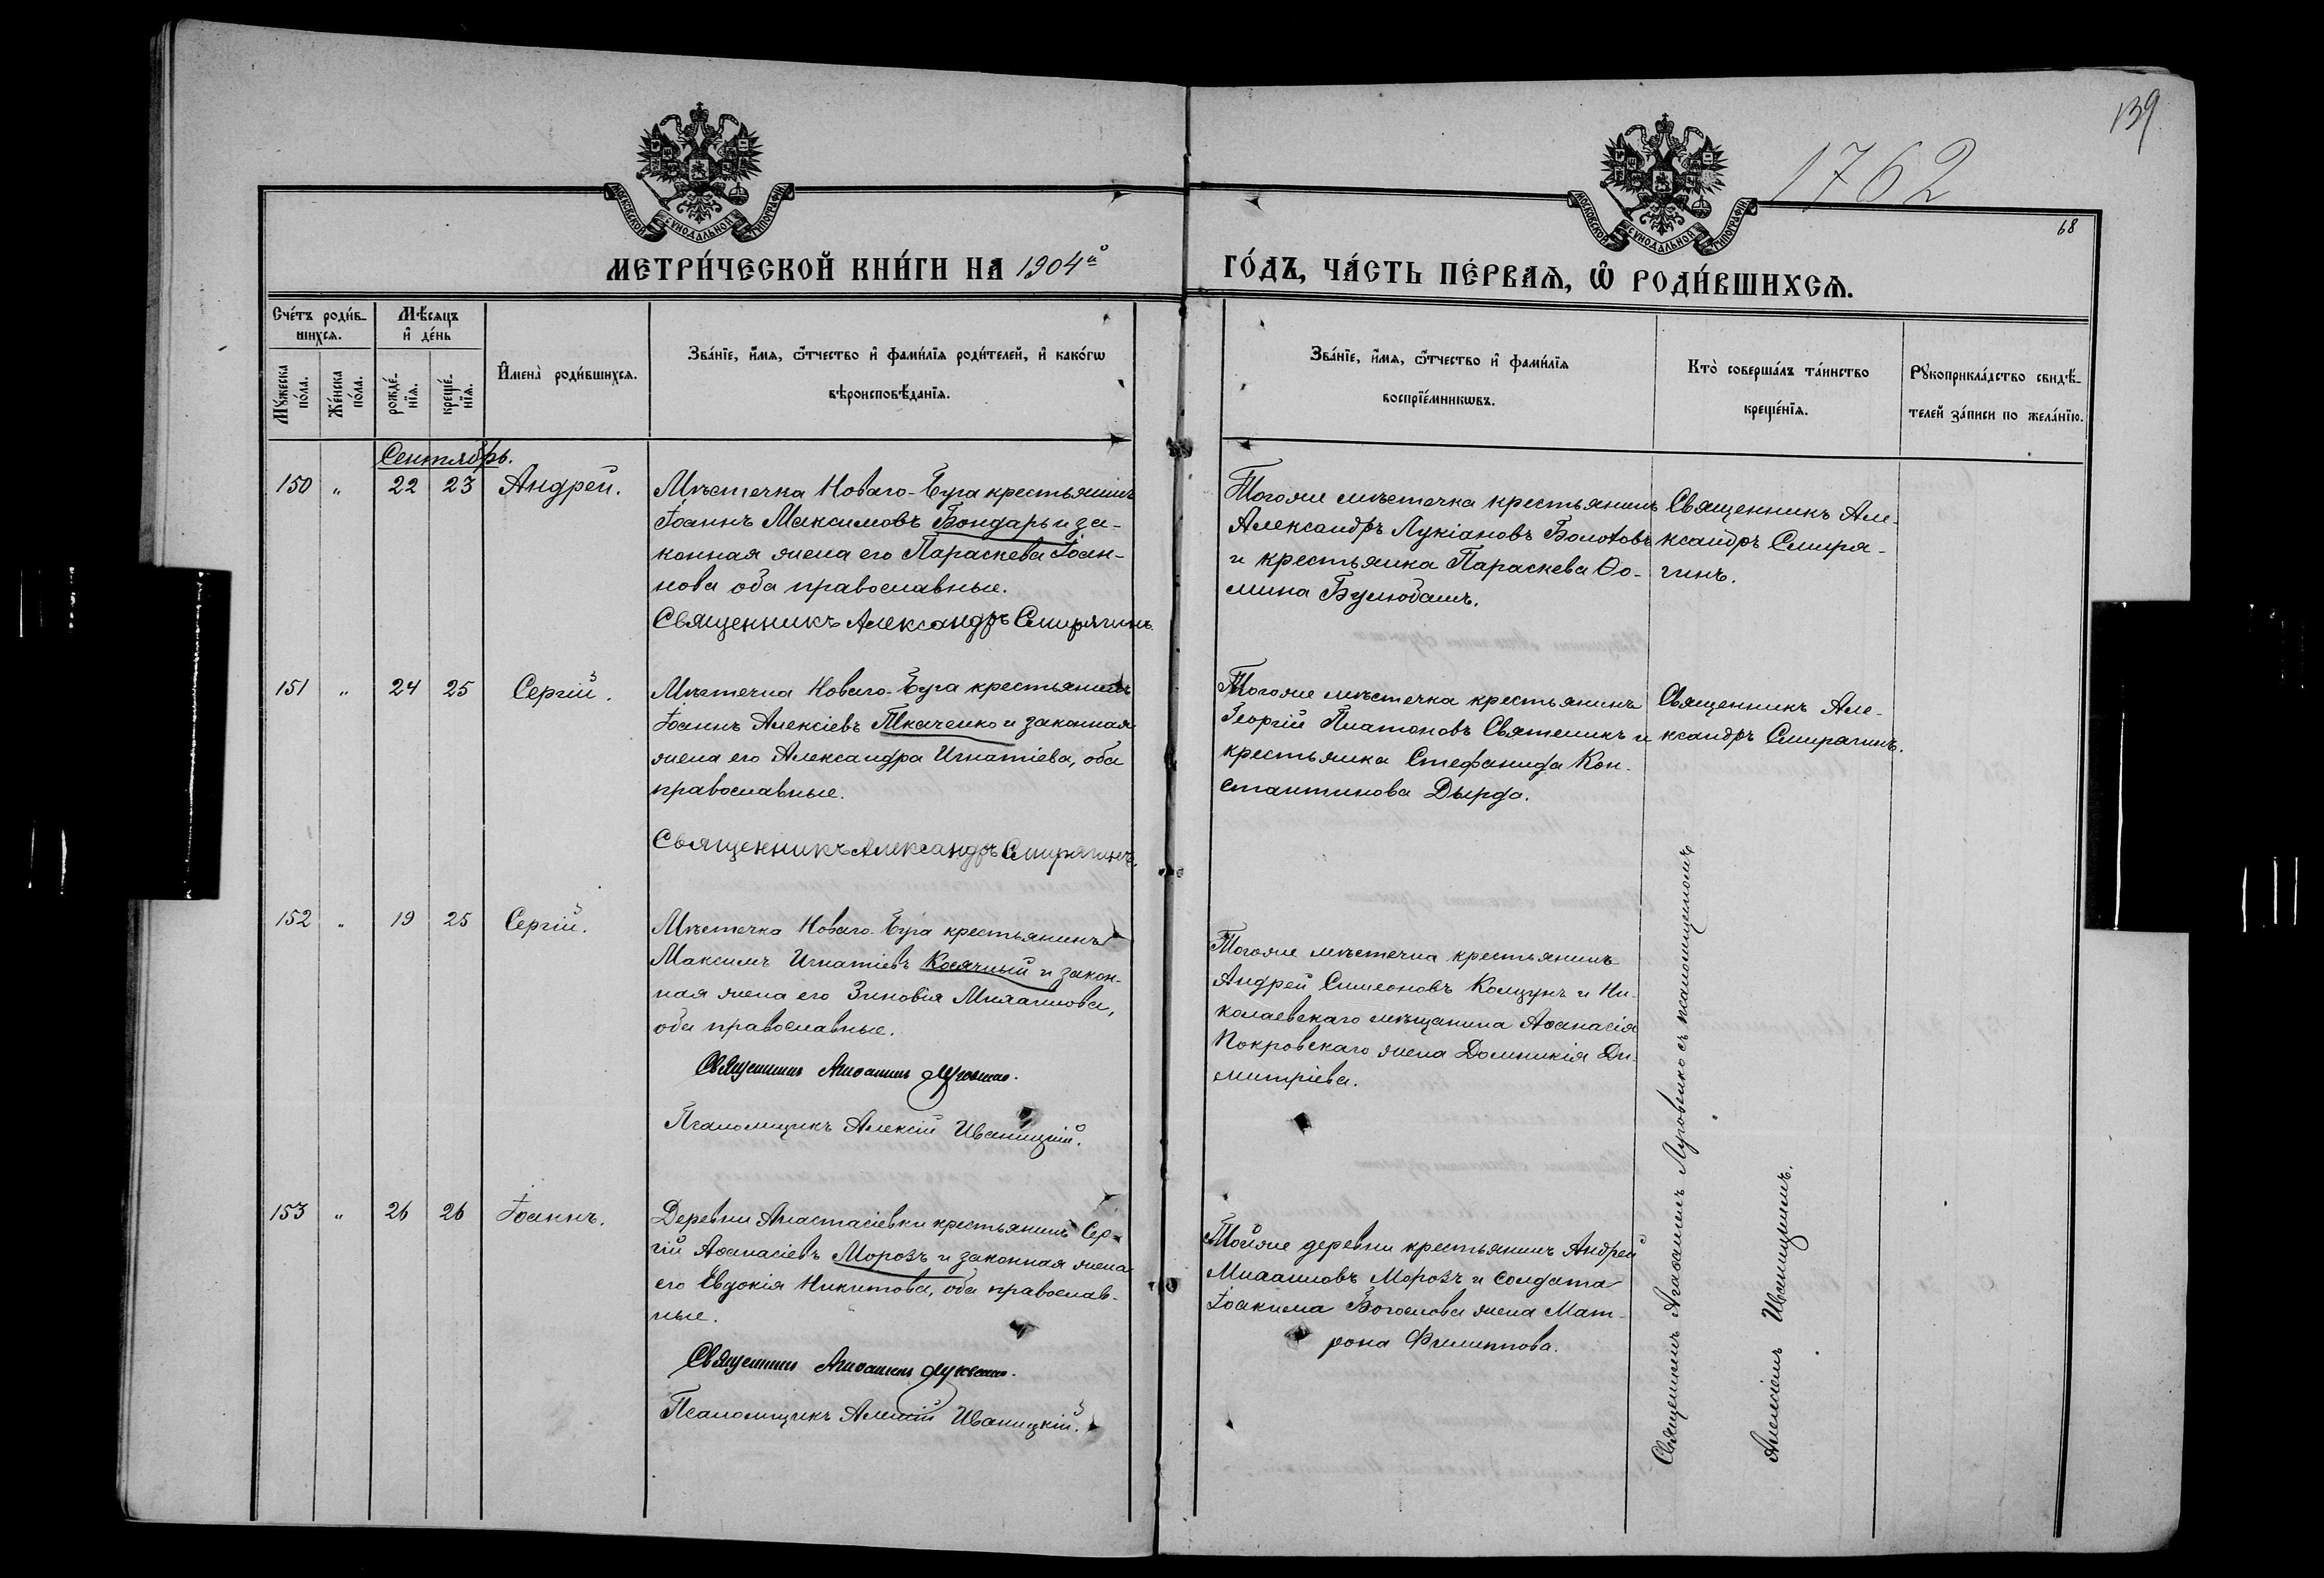 139
1762
68
МОСКОВСКОЙ СѴНОДАЛЬНОЙ ТИПОГРАФІИ
МОСКОВСКОЙ СѴНОДАЛЬНОЙ ТИПОГРАФІИ
МЕТРИ́ЧЕСКОЙ КНИ́ГИ НА 1904й
ГО́ДЪ, ЧА́СТЬ ПЕ́РВАѦ, Ѽ РОДИ́ВШИХСѦ.
Сче́тъ роди́в-
шихсѧ.
Мꙋ́жеска по́ла.
Же́нска по́ла.
Мѣ́сѧцъ
и҆ де́нь
рожде́-
нїѧ.
креще́-
нїѧ.
И҆мена̀ роди́вшихсѧ.
Зва́нїе, и҆́мѧ, ѻ҆́тчество и҆ фами́лїѧ роди́телей, и҆ како́гѡ
вѣроисповѣ́данїѧ.
Зва́нїе, и҆́мѧ, ѻ҆́тчество и҆ фами́лїѧ
воспрїе́мникѡвъ.
Кто̀ соверша́лъ та́инство
креще́нїѧ.
Рꙋкоприкла́дство свидѣ́-
телей за́писи по жела́нїю.
Сентябрь.
150 " 22 23 Андрей.
Мѣстечка Новаго-Буга крестьянинъ
Іоаннъ Максимовъ Бондарь и за-
конная жена его Параскева Іоан-
нова оба православные.
Священникъ Александръ Смирягинъ.
Тогоже мѣстечка крестьянинъ
Александръ Лукіановъ Болотовъ
и крестьянка Параскева Ѳо-
мина Булюбашъ.
Священникъ Але-
ксандръ Смиря-
гинъ.
151 " 24 25 Сергій.
Мѣстечка Новаго-Буга крестьянинъ
Іоаннъ Алексіевъ Ткаченко и законная
жена его Александра Игнатіева, оба
православные.
Священникъ Александръ Смирягинъ.
Тогоже мѣстечка крестьянинъ
Георгій Платоновъ Святеникъ и
крестьянка Стефанида Кон-
стантинова Дырда.
Священникъ Але-
ксандръ Смирягинъ.
152 " 19 25 Сергій.
Мѣстечка Новаго-Буга крестьянинъ
Максимъ Игнатіевъ и закон-
ная жена его Зиновія Михаилова,
оба православные.
Священникъ Агаѳангелъ
Псаломщикъ Алексій Иваницкій.
Тогоже мѣстечка крестьянинъ
Андрей Симеоновъ и Ни-
колаевскаго мѣщанина Аѳанасія
Покровскаго жена Домникія Ди-
митріева.
153 " 26 26 Іоаннъ.
Деревни Анастасіевки крестьянинъ Сер-
гій Аѳанасіевъ Морозъ и законная жена
его Евдокія Никитова, оба православ-
ные.
Священникъ
Псаломщикъ Алексій Иваницкій.
Тойже деревни крестьянинъ Андрей
Михаиловъ Морозъ и солдата
Іоакима Богослова жена Мат-
рона Филиппова.
Священникъ съ псаломщикомъ
Алексіемъ Иваницкимъ.